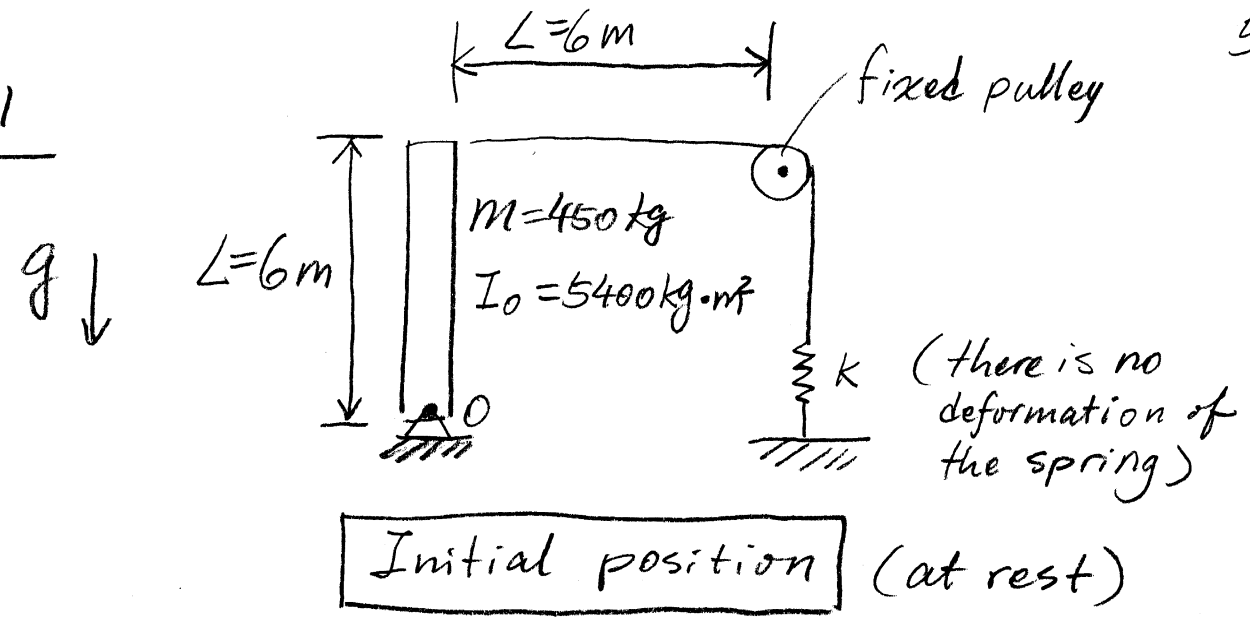 L=6m
fixed pulley
1
m=450kg
g
L=6m
I₀=5400kg·m²
k
(there is no
deformation of
the spring)
O
Initial position (at rest)